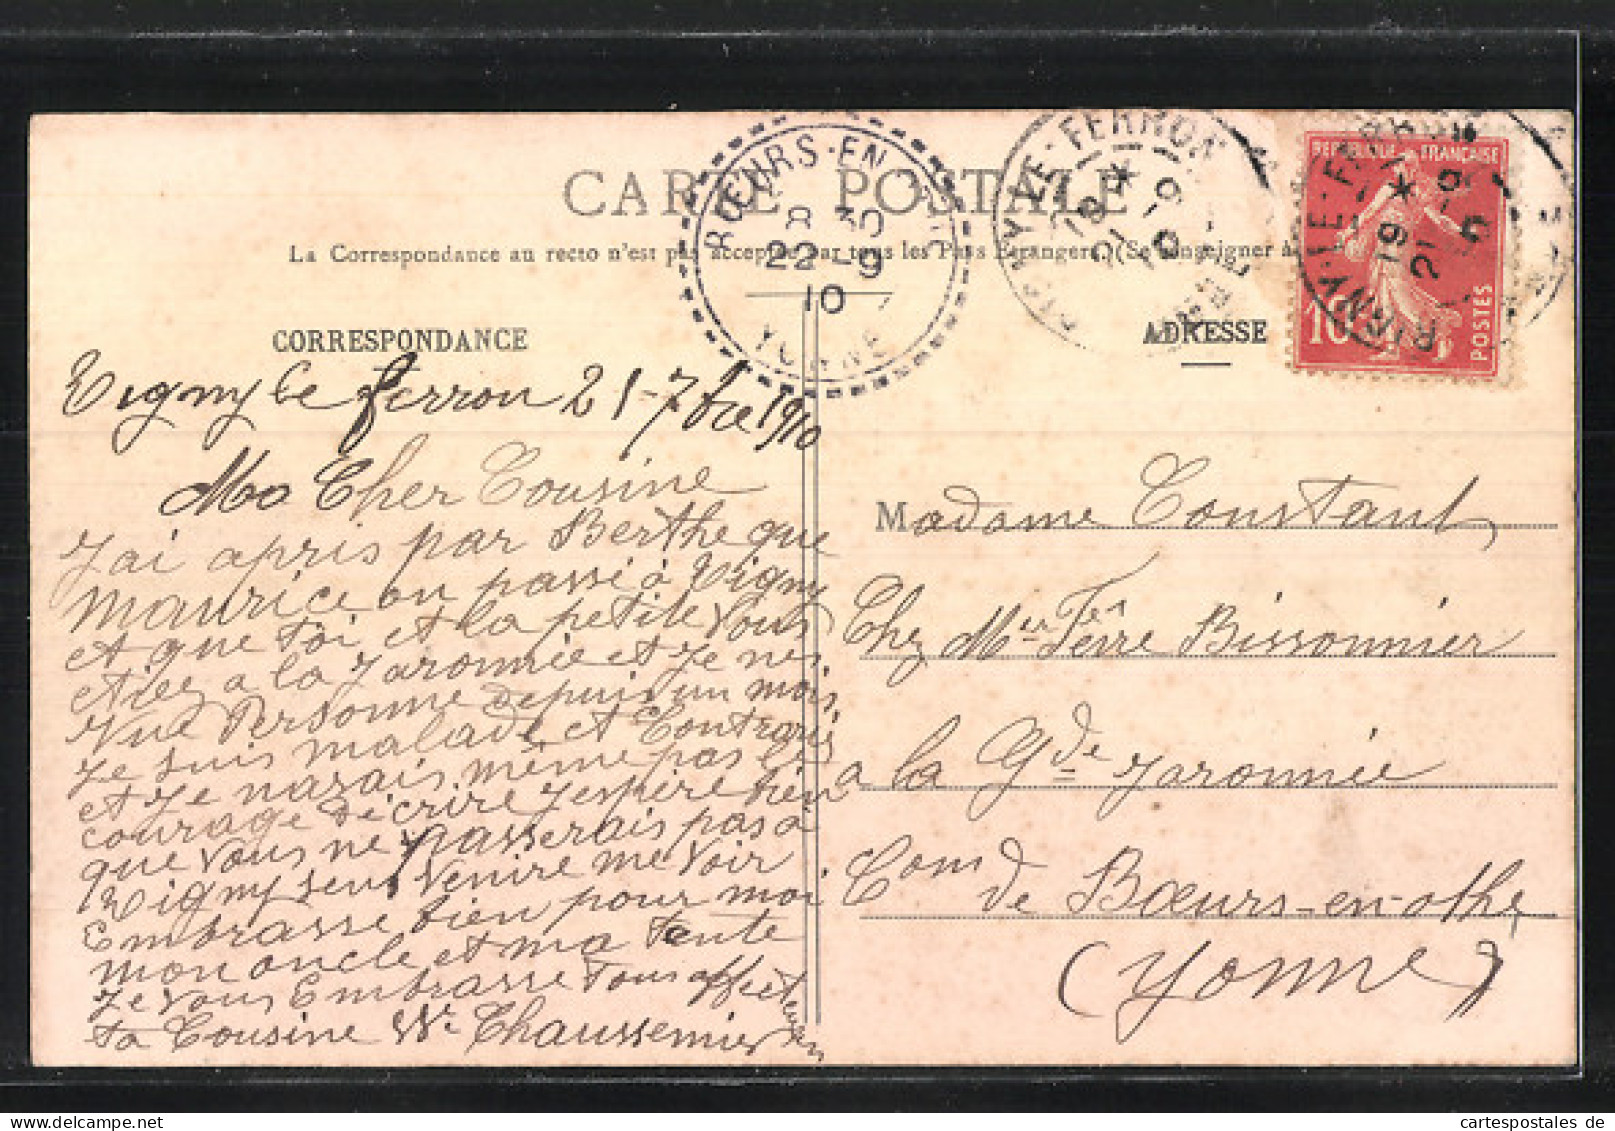 CARTE POSTALE
La Correspondance au recto n'est pas acceptée par tous les Pays Étrangers. (Se renseigner à
CORRESPONDANCE
ADRESSE
BŒURS-EN-
8 30
22 -9
10
YONNE
RIGNY-LE-FERRON
18 *
RIGNY-LE-FERRON
19 *
21 -9
REPUBLIQUE FRANÇAISE
10
POSTES
Rigny le ferron 21-7bre 1910
Ma Cher Cousine
J'ai apris par Berthe que
Maurice on passé à Rigny
et que toi et la petite vous
etiez a la Jaronnée et je nes
Vue Personne depuis un mois,
Je suis malade et Contrarié
et Je narais même pas le
courage décrire J'espère bien
que vous ne passerais pas à
Rigny sens venire me voir
Embrasse bien pour moi
mon oncle et ma tente
Je vous Embrasse tous affectueusen
ta Cousine Vve Chaussemier
Madame Constant
Chez Mr Ferre Bissonnier
a la Gde Jaronnée
Com de Bœurs-en-othe
(Yonne)
cartespostales de